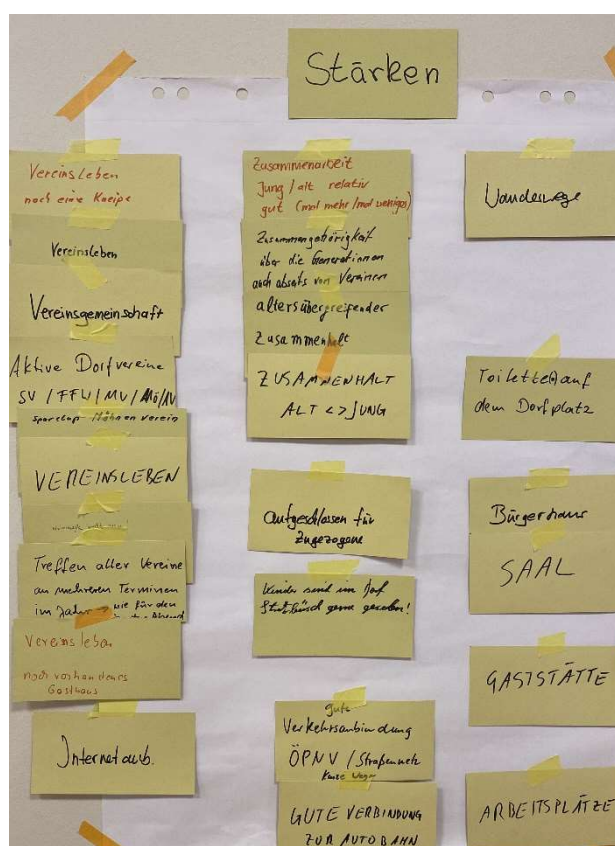 Stärken
Vereinsleben
noch eine Kneipe
Vereinsleben
Vereinsgemeinschaft
Aktive Dorfvereine
SV / FFW / MV /
Möhnen verein
VEREINSLEBEN
Treffen aller Vereine
an mehreren Terminen
im Jahr → wie für den
Vereinsleben
noch vorhandenes
Gasthaus
Internetanb.
Zusammenarbeit
Jung / alt relativ
gut (mal mehr / mal weniger)
Zusammengehörigkeit
über die Generationen
auch abseits von Vereinen
altersübergreifender
Zusammenhalt
ZUSAMMENHALT
ALT <> JUNG
aufgeschlossen für
Zugezogene
Kinder sind im Dorf
gerne gesehen!
gute
Verkehrsanbindung
ÖPNV / Straßennetz
kurze Wege
GUTE VERBINDUNG
ZUR AUTOBAHN
Wanderwege
Toilette(n) auf
dem Dorfplatz
Bürgerhaus
SAAL
GASTSTÄTTE
ARBEITSPLÄTZE